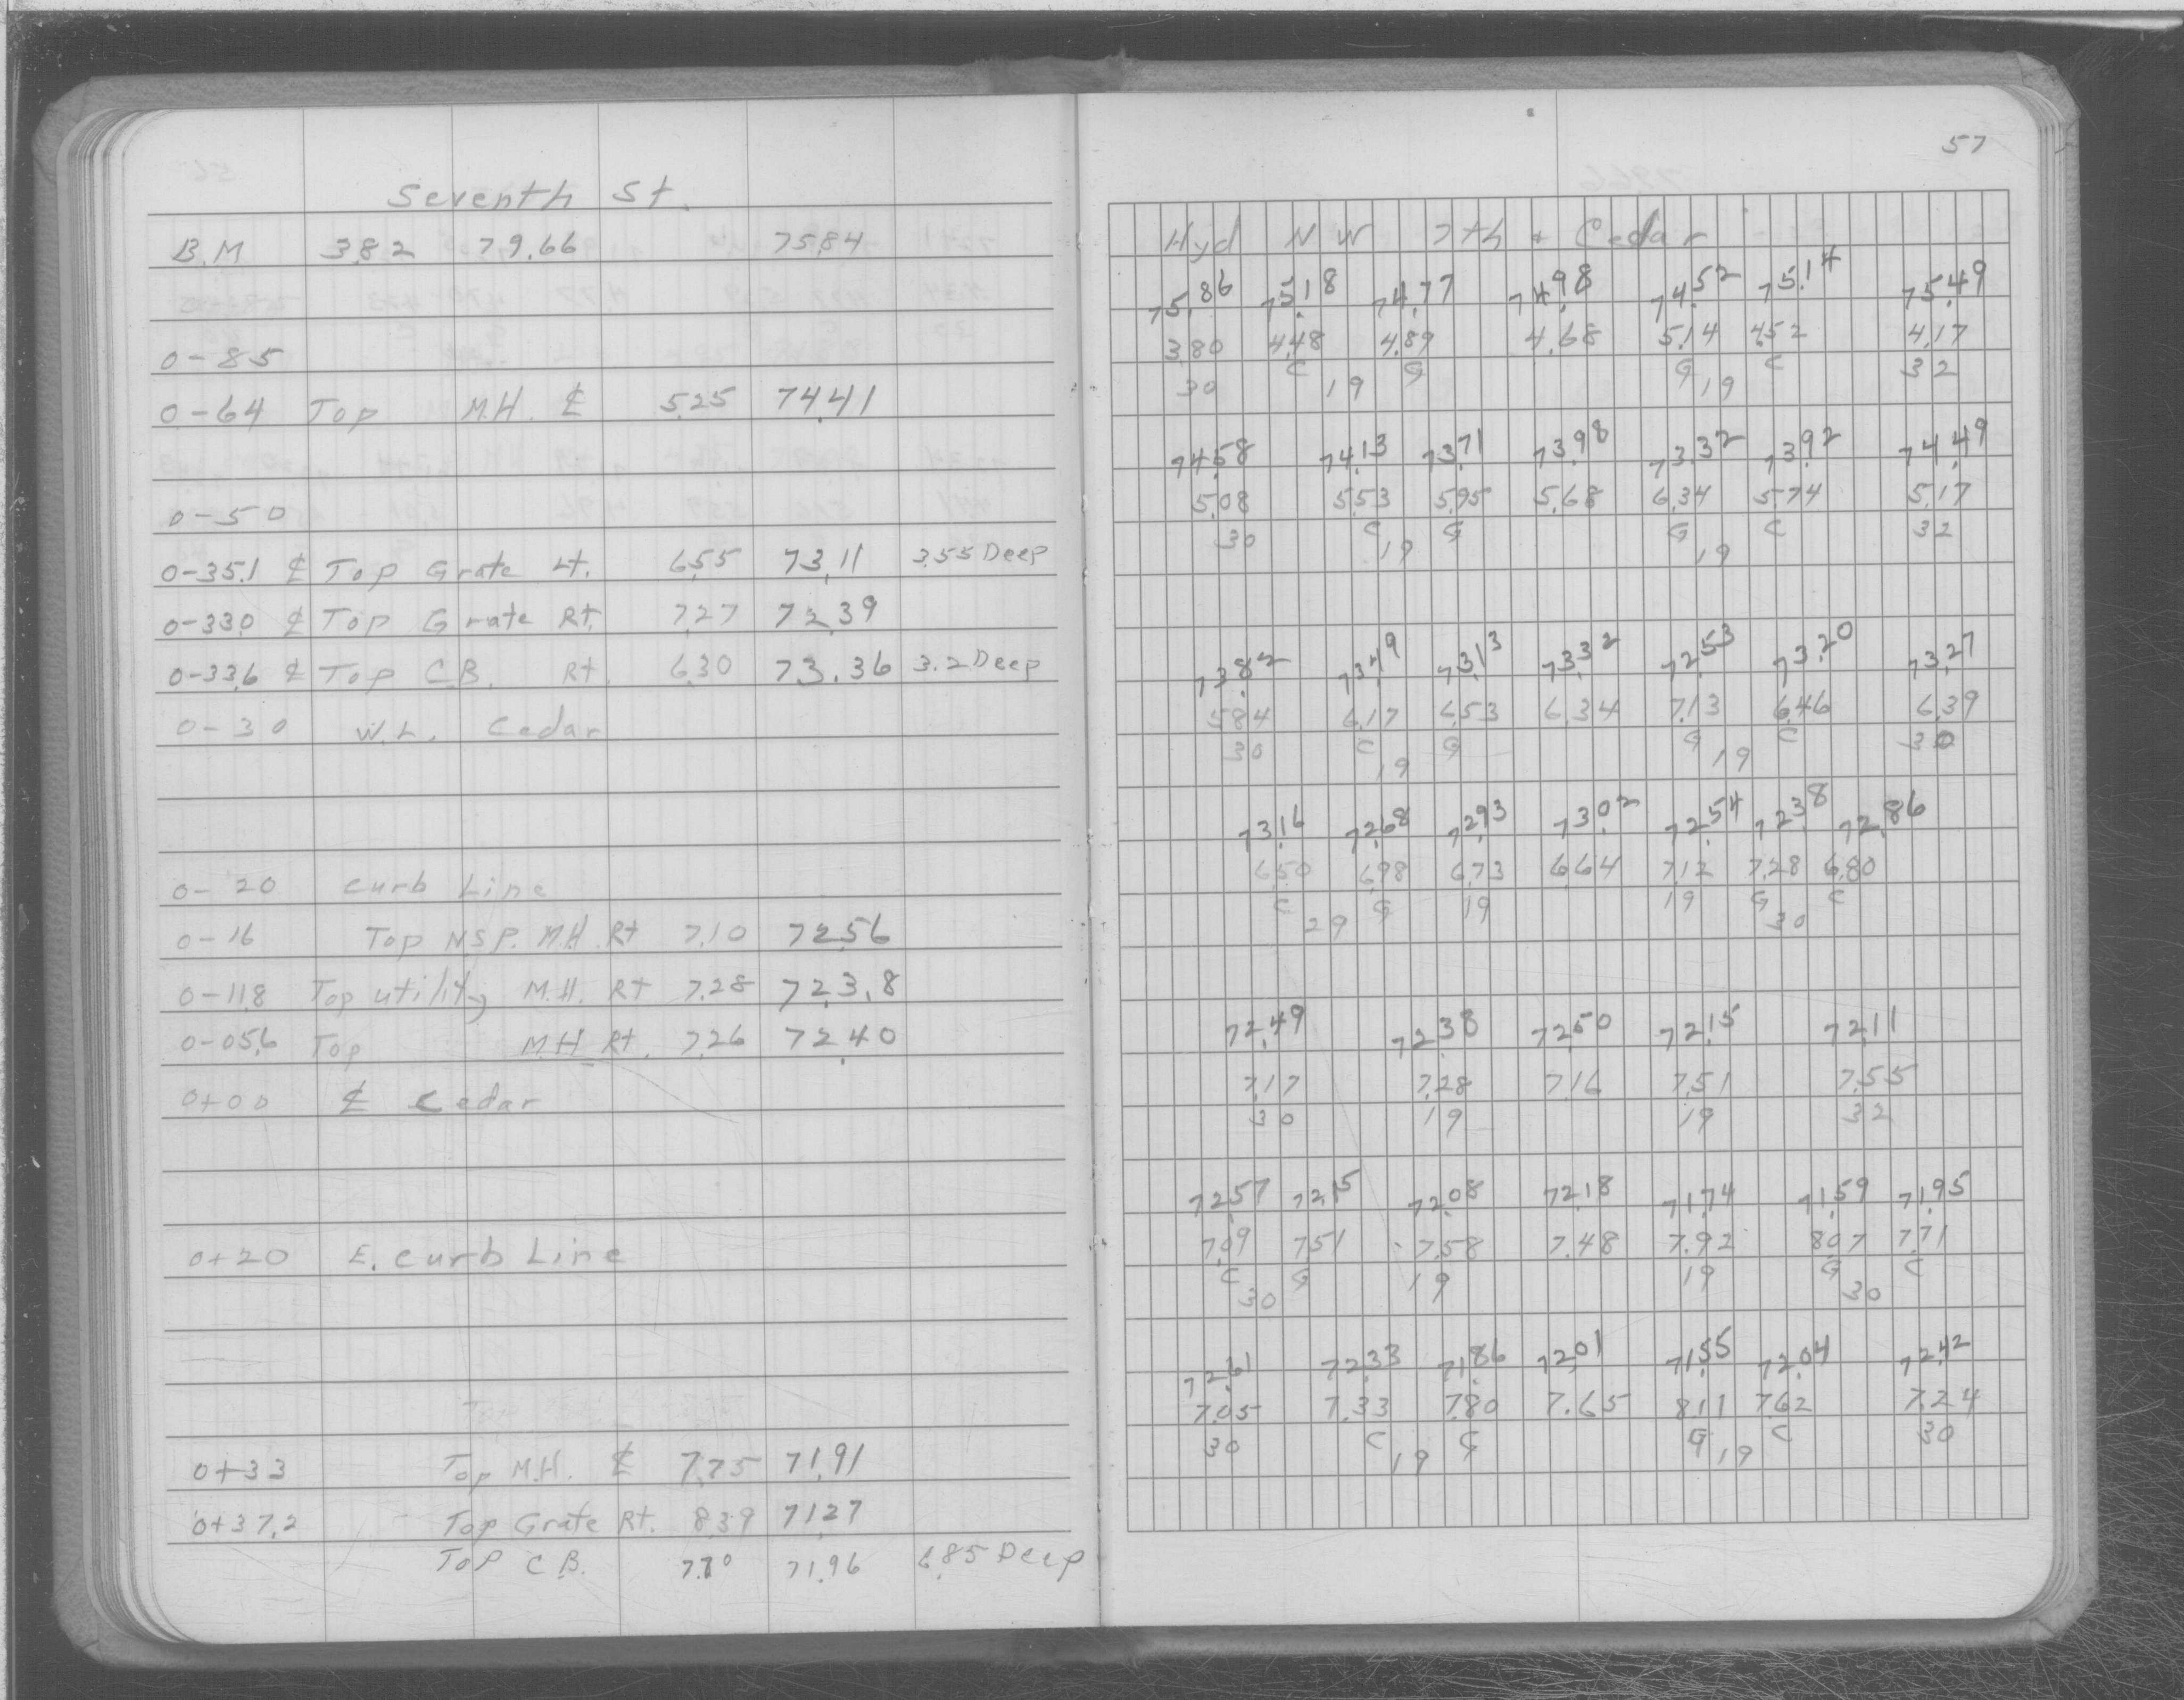 Seventh St.
B.M 3.82 79.66 75.84
0-85
0-64 Top M.H. ℄ 5.25 74.41
0-50
0-35.1 ℄ Top Grate Lt. 6.55 73.11 3.55 Deep
0-33.0 ℄ Top Grate Rt. 7.27 72.39
0-33.6 ℄ Top C.B. Rt. 6.30 73.36 3.2 Deep
0-30 W.L. Cedar
0-20 Curb Line
0-16 Top N.S.P. M.H. Rt 7.10 72.56
0-11.8 Top utility M.H. Rt 7.28 72.38
0-05.6 Top M.H. Rt. 7.26 72.40
0+00 ℄ Cedar
0+20 E. Curb Line
0+33 Top M.H. ℄ 7.75 71.91
0+37.2 Top Grate Rt. 8.39 71.27
Top C.B. 7.70 71.96 6.85 Deep
57
Hyd N W 7th + Cedar
75.86 75.18 74.77 74.98 74.52 75.14 75.49
3.80 4.48 4.89 4.68 5.14 4.52 4.17
30 C 19 G G 19 C 32
74.58 74.13 73.71 73.98 73.32 73.92 74.49
5.08 5.53 5.95 5.68 6.34 5.74 5.17
30 C 19 G G 19 C 32
73.82 73.49 73.13 73.32 72.53 73.20 73.27
5.84 6.17 6.53 6.34 7.13 6.46 6.39
30 C 19 G G 19 C 30
73.16 72.68 72.93 73.02 72.54 72.38 72.86
6.50 6.98 6.73 6.64 7.12 7.28 6.80
C 29 G 19 19 G 30 C
72.49 72.38 72.50 72.15 72.11
7.17 7.28 7.16 7.51 7.55
30 19 19 32
72.57 72.15 72.08 72.18 71.74 71.59 71.95
7.09 7.51 7.58 7.48 7.92 8.07 7.71
C 30 G 19 19 G 30 C
72.61 72.33 71.86 72.01 71.55 72.04 72.42
7.05 7.33 7.80 7.65 8.11 7.62 7.24
30 C 19 G G 19 C 30